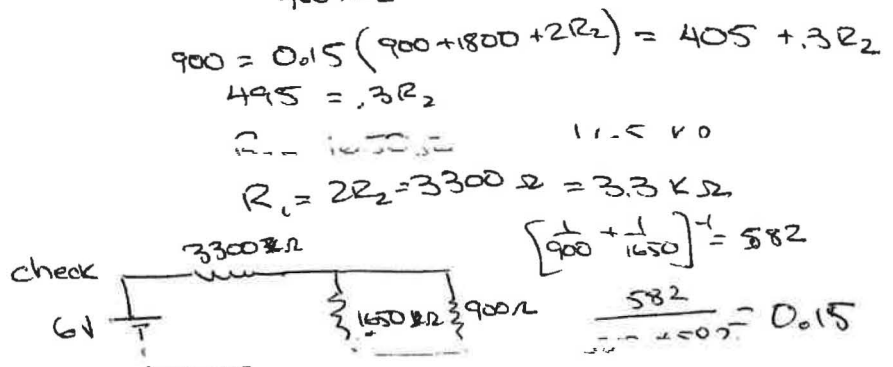 900 = 0.15 (900+1800+2R₂) = 405 + .3R₂
495 = .3R₂
R₁ = 2R₂ = 3300 Ω = 3.3 KΩ
[1/900 + 1/1650]⁻¹ = 582
check
3300 Ω
6V
1650 Ω
900Ω
582
= 0.15